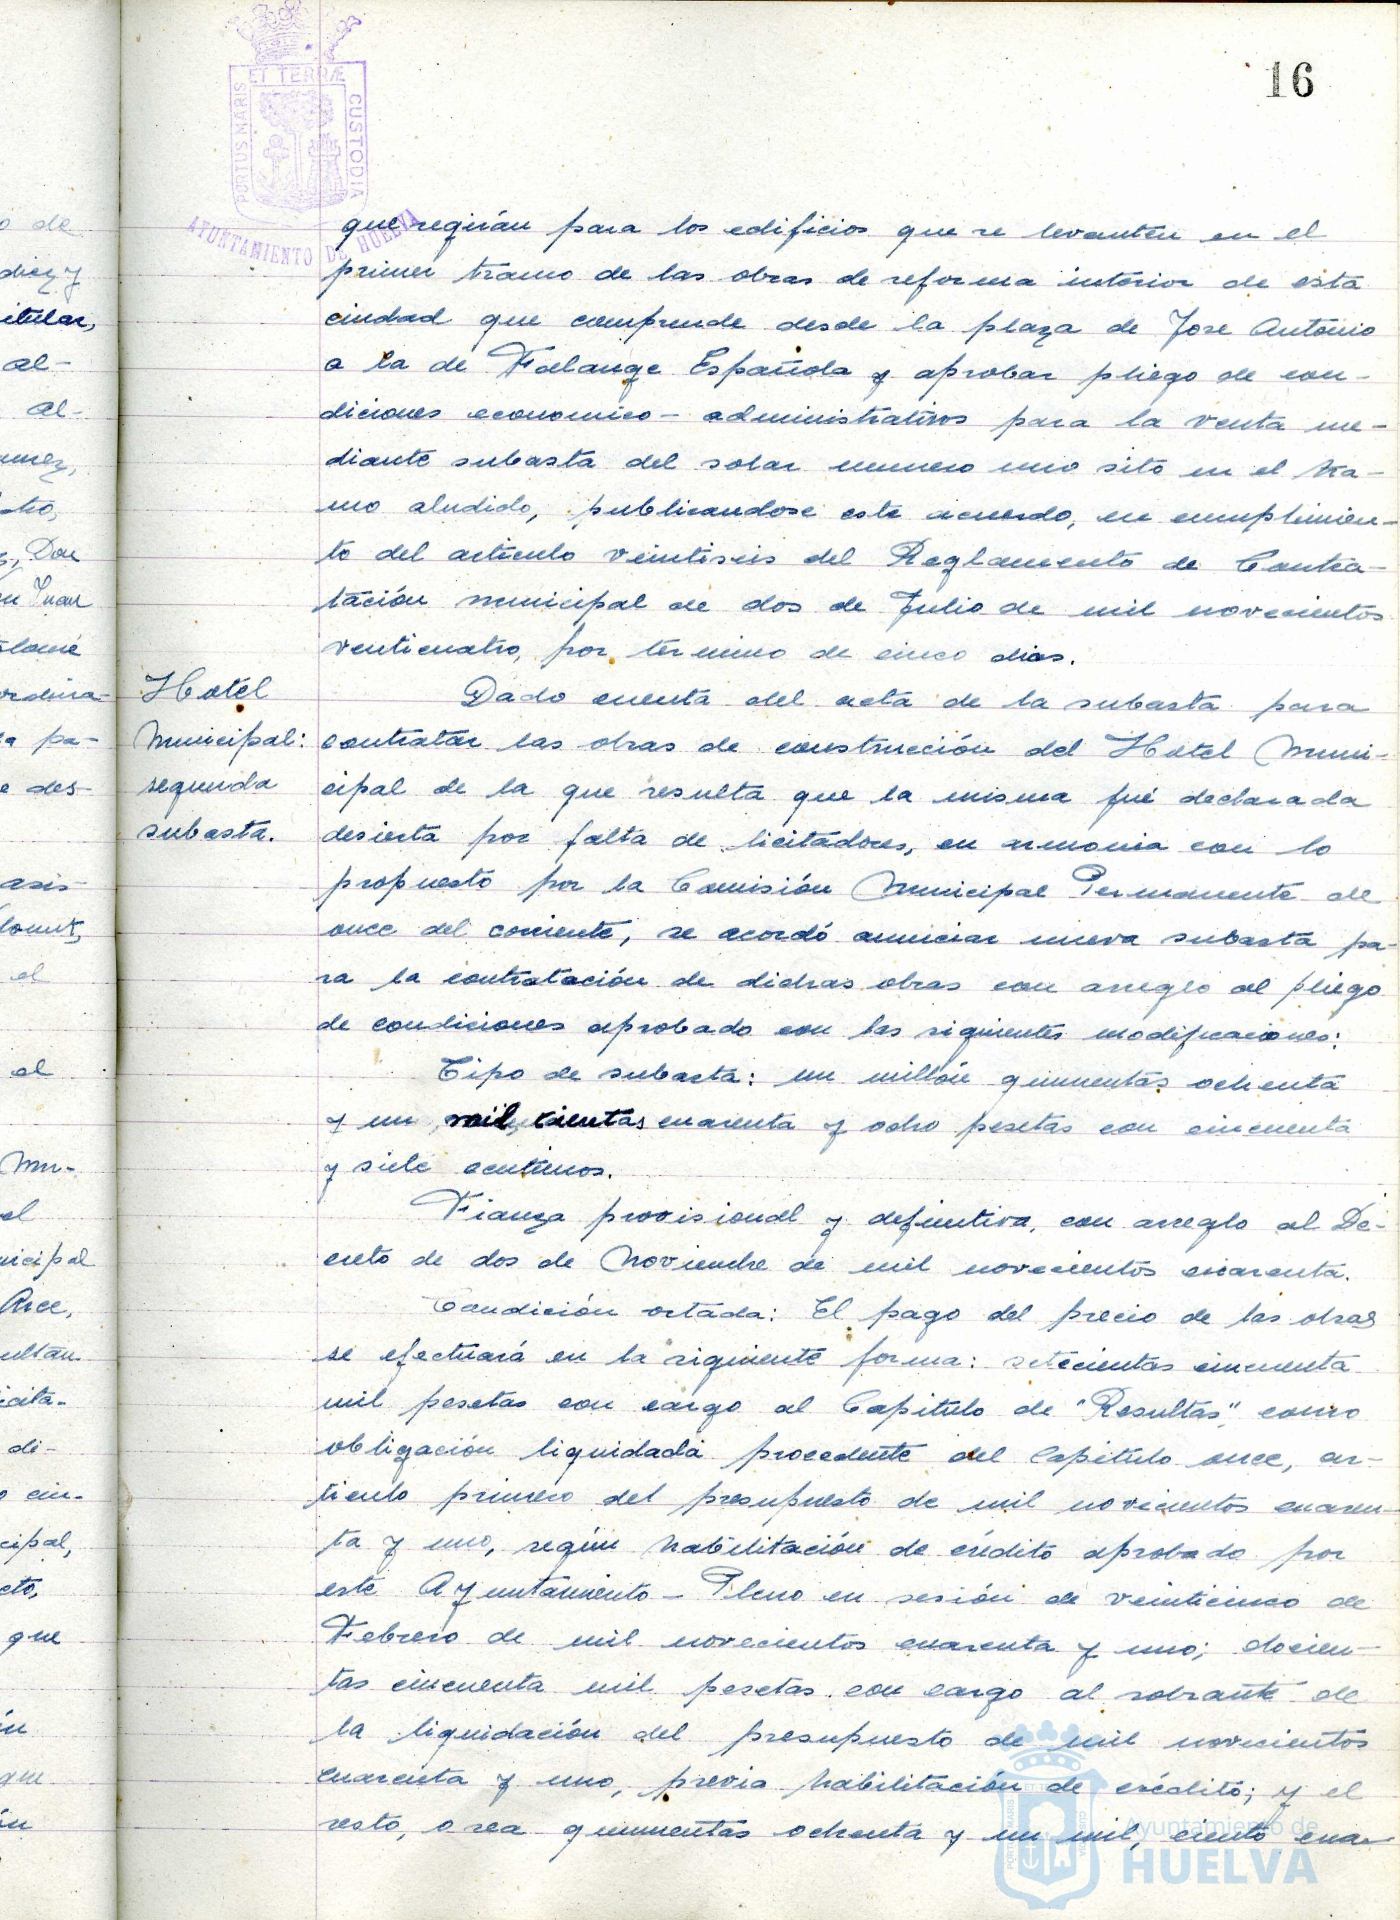 16
ET TERRÆ
PORTUS MARIS
CUSTODIA
AYUNTAMIENTO DE HUELVA
que regirán para los edificios que se levanten en el
primer tramo de las obras de reforma interior de esta
ciudad que comprende desde la plaza de Jose Antonio
a la de Falange Española y aprobar pliego de con-
diciones economico-administrativos para la venta me-
diante subasta del solar numero uno sito en el tra-
mo aludido, publicandose este acuerdo, en cumplimien-
to del articulo veintiseis del Reglamento de Contra-
tación municipal de dos de Julio de mil novecientos
venticuatro, por termino de cinco dias.
Hotel
Municipal:
segunda
subasta.
Dado cuenta del acta de la subasta para
contratar las obras de construcción del Hotel Muni-
cipal de la que resulta que la misma fué declarada
desierta por falta de licitadores, en armonia con lo
propuesto por la Comisión Municipal Permanente del
once del corriente, se acordó anunciar nueva subasta pa-
ra la contratación de dichas obras con arreglo al pliego
de condiciones aprobado con las siguientes modificaciones:
Tipo de subasta: un millón quinientas ochenta
y un mil, cientas cuarenta y ocho pesetas con cincuenta
y siete centimos.
Fianza provisional y definitiva, con arreglo al De-
creto de dos de Noviembre de mil novecientos cuarenta.
Condición octada: El pago del precio de las obras
se efectuará en la siguiente forma: setecientas cincuenta
mil pesetas con cargo al Capitulo de "Resultas", como
obligación liquidada procedente del Capitulo once, ar-
ticulo primero del presupuesto de mil novecientos cuaren-
ta y uno, según habilitación de crédito aprobado por
este Ayuntamiento-Pleno en sesión de veinticinco de
Febrero de mil novecientos cuarenta y uno; docien-
tas cincuenta mil pesetas con cargo al sobrante de
la liquidación del presupuesto de mil novecientos
cuarenta y uno, previa habilitación de crédito; y el
resto, o sea quinientas ochenta y un mil, ciento cua-
Ayuntamiento de
HUELVA